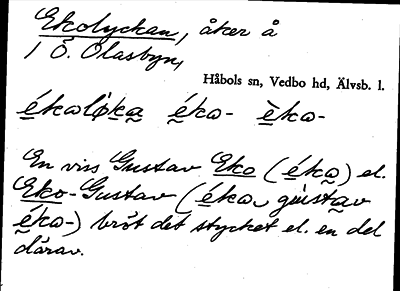 Ekolyckan, åker å
1 Ö. Olasbyn,
Håbols sn, Vedbo hd, Älvsb. l.
ékaløka éka- èka-
En viss Gustav Eko (éka) el.
Eko-Gustav (éka gústav
éka-) bröt det stycket el. en del
därav.